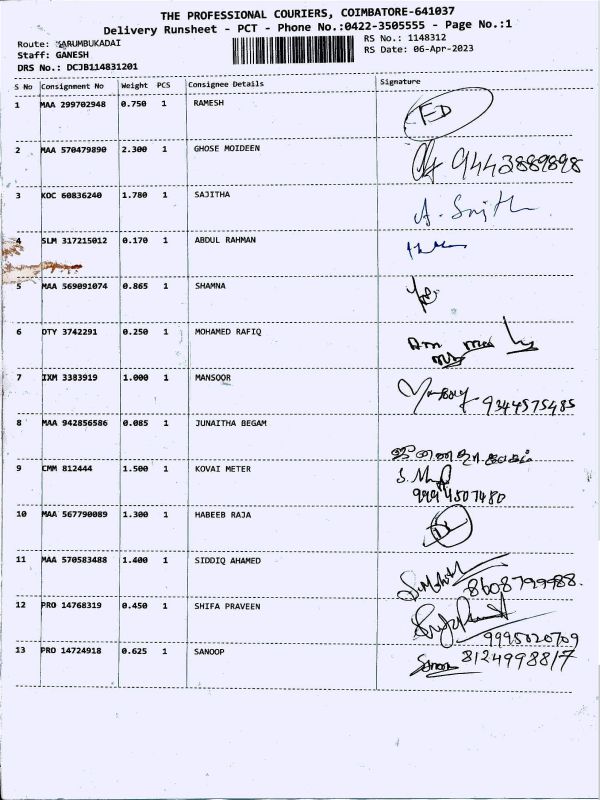 THE PROFESSIONAL COURIERS, COIMBATORE-641037
Delivery Runsheet - PCT - Phone No.:0422-3505555 - Page No.:1
Route: KARUMBUKADAI
RS No.: 1148312
Staff: GANESH
RS Date: 06-Apr-2023
DRS No.: DCJB114831201
S No Consignment No Weight PCS Consignee Details Signature
1 MAA 299702948 0.750 1 RAMESH
2 MAA 570479890 2.300 1 GHOSE MOIDEEN 9442889898
3 KOC 60836240 1.780 1 SAJITHA
4 SLM 317215012 0.170 1 ABDUL RAHMAN
5 MAA 569091074 0.865 1 SHAMNA
6 DTY 3742291 0.250 1 MOHAMED RAFIQ
7 IXM 3383919 1.000 1 MANSOOR 9344575485
8 MAA 942856586 0.085 1 JUNAITHA BEGAM
9 CMM 812444 1.500 1 KOVAI METER
9994507480
10 MAA 567790089 1.300 1 HABEEB RAJA
11 MAA 570583488 1.400 1 SIDDIQ AHAMED 8608799988.
12 PRO 14768319 0.450 1 SHIFA PRAVEEN
9995020709
13 PRO 14724918 0.625 1 SANOOP 8124998817